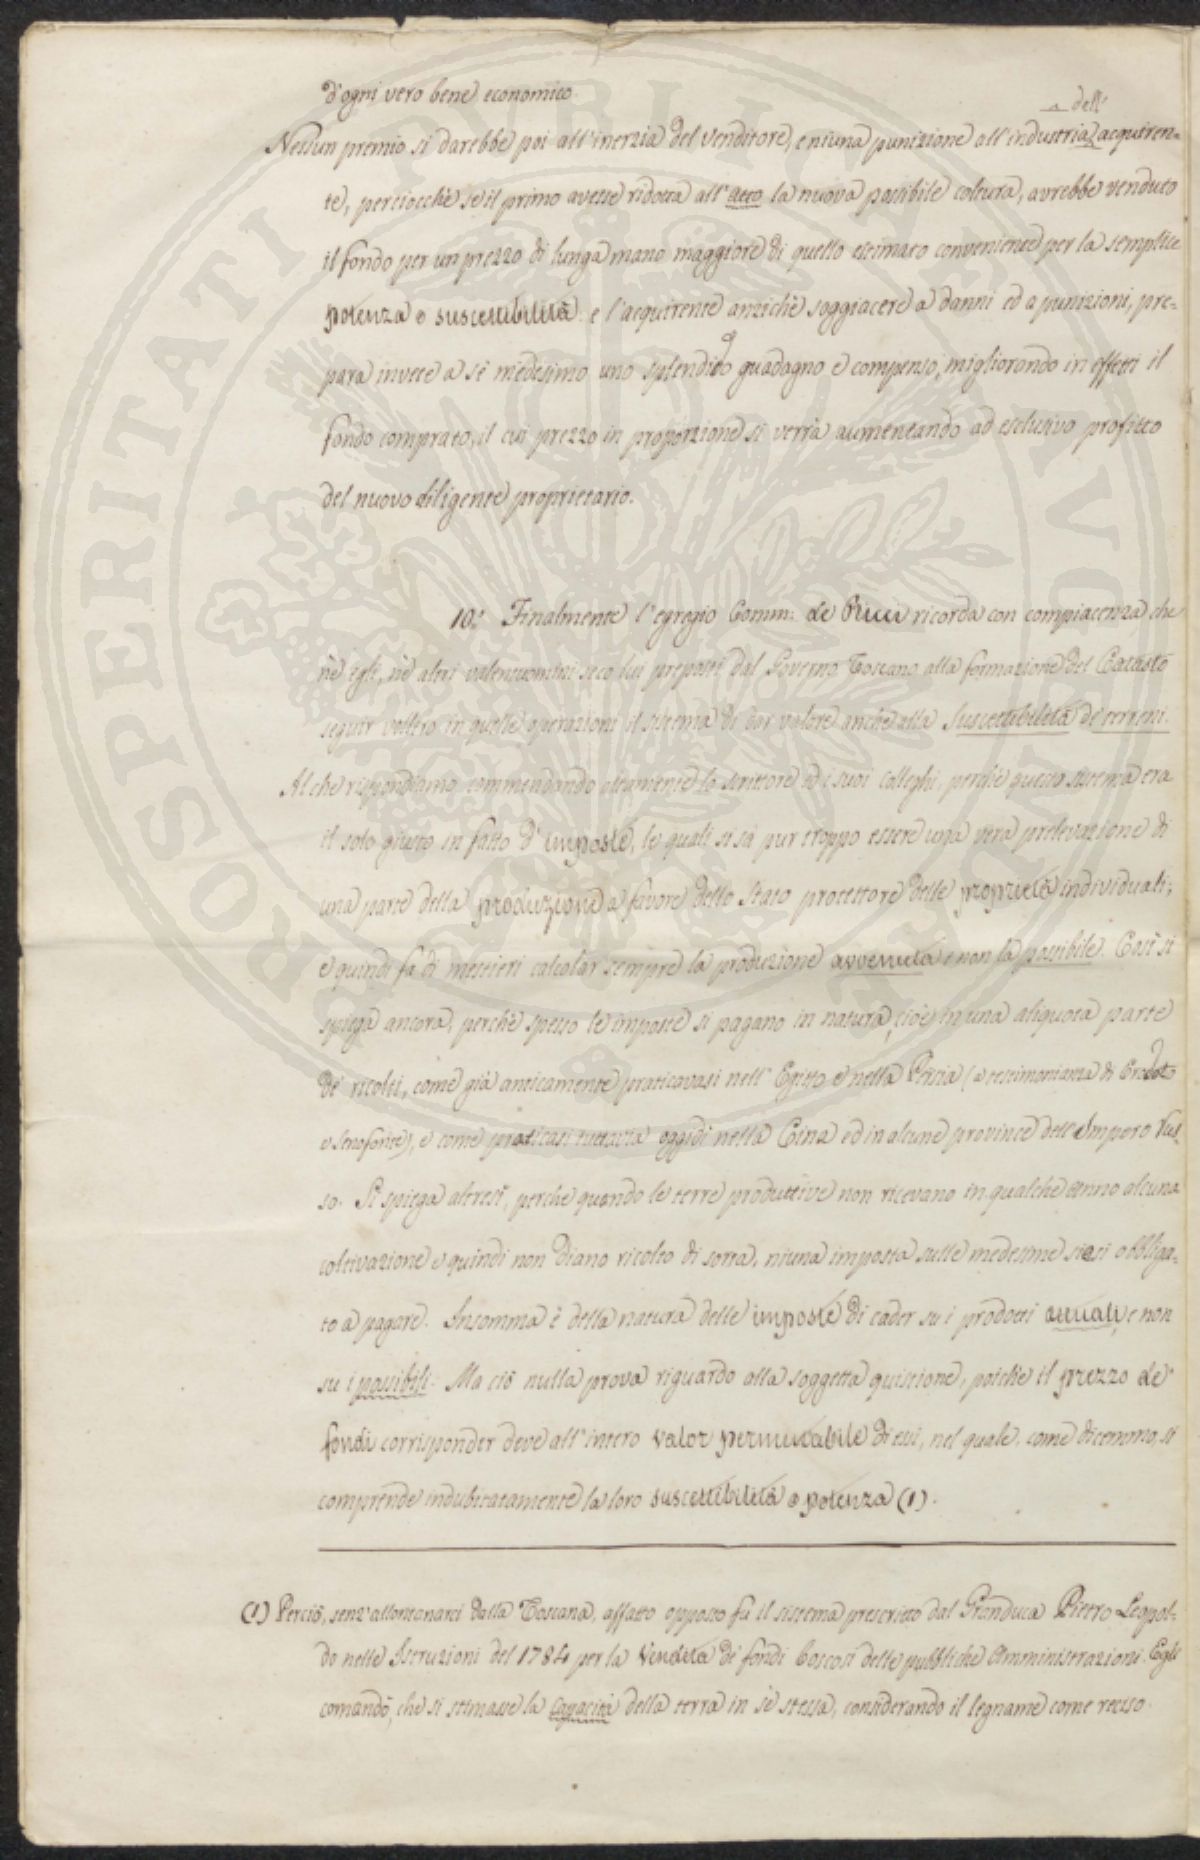 d'ogni vero bene economico.
dell'
Nessun premio si darebbe poi all'inerzia del venditore, e niuna punizione all'industria acquiren-
te, perciocchè se il primo avesse ridotta all'atto la nuova possibile coltura, avrebbe venduto
il fondo per un prezzo di lunga mano maggiore di quello estimato conveniente per la semplice
potenza o suscettibilità: e l'acquirente anzichè soggiacere a danni ed a punizioni, pre-
para invece a sè medesimo uno splendido guadagno e compenso, migliorando in effetti il
fondo comprato, il cui prezzo in proporzione si verrà aumentando ad esclusivo profitto
del nuovo diligente proprietario.
10.° Finalmente l'egregio Comm: de Ricci ricorda con compiacenza, che
nè egli, nè altri valentuomini seco lui preposti dal Governo Toscano alla formazione del Catasto
seguir vollero in quelle operazioni il sistema di dar valore anche alla suscettibilità de' terreni.
Al che rispondiamo commendando altamente lo scrittore ed i suoi colleghi, perchè questo sistema era
il solo giusto in fatto d'imposte, le quali si sa pur troppo essere una vera prelevazione di
una parte della produzione a favore dello Stato protettore delle proprietà individuali;
e quindi fa di mestieri calcolar sempre la produzione avvenuta e non la possibile. Così si
spiega ancora, perchè spesso le imposte si pagano in natura, cioè in una aliquota parte
de' ricolti, come già anticamente praticavasi nell'Egitto e nella Persia (a testimonianza di Erodoto
e Senofonte), e come praticasi tuttavia oggidì nella Cina ed in alcune province dell'Impero Rus-
so. Si spiega altresì, perchè quando le terre produttive non ricevano in qualche anno alcuna
coltivazione e quindi non diano ricolto di sorta, niuna imposta sulle medesime siasi obbliga-
to a pagare. Insomma è della natura delle imposte di cader su i prodotti attuali, e non
su i possibili. Ma ciò nulla prova riguardo alla soggetta quistione, poichè il prezzo de'
fondi corrisponder deve all'intero valor permutabile di essi, nel quale, come dicemmo, si
comprende indubitatamente la loro suscettibilità o potenza (1).
(1) Perciò, senz'allontanarci dalla Toscana, affatto opposto fu il sistema prescritto dal Granduca Pietro Leopol-
do nelle Istruzioni del 1784 per la vendita de' fondi boscosi delle pubbliche Amministrazioni. Egli
comandò, che si stimasse la capacità della terra in sè stessa, considerando il legname come reciso.
PROSPERITATI PUBLICAE AUGENDAE